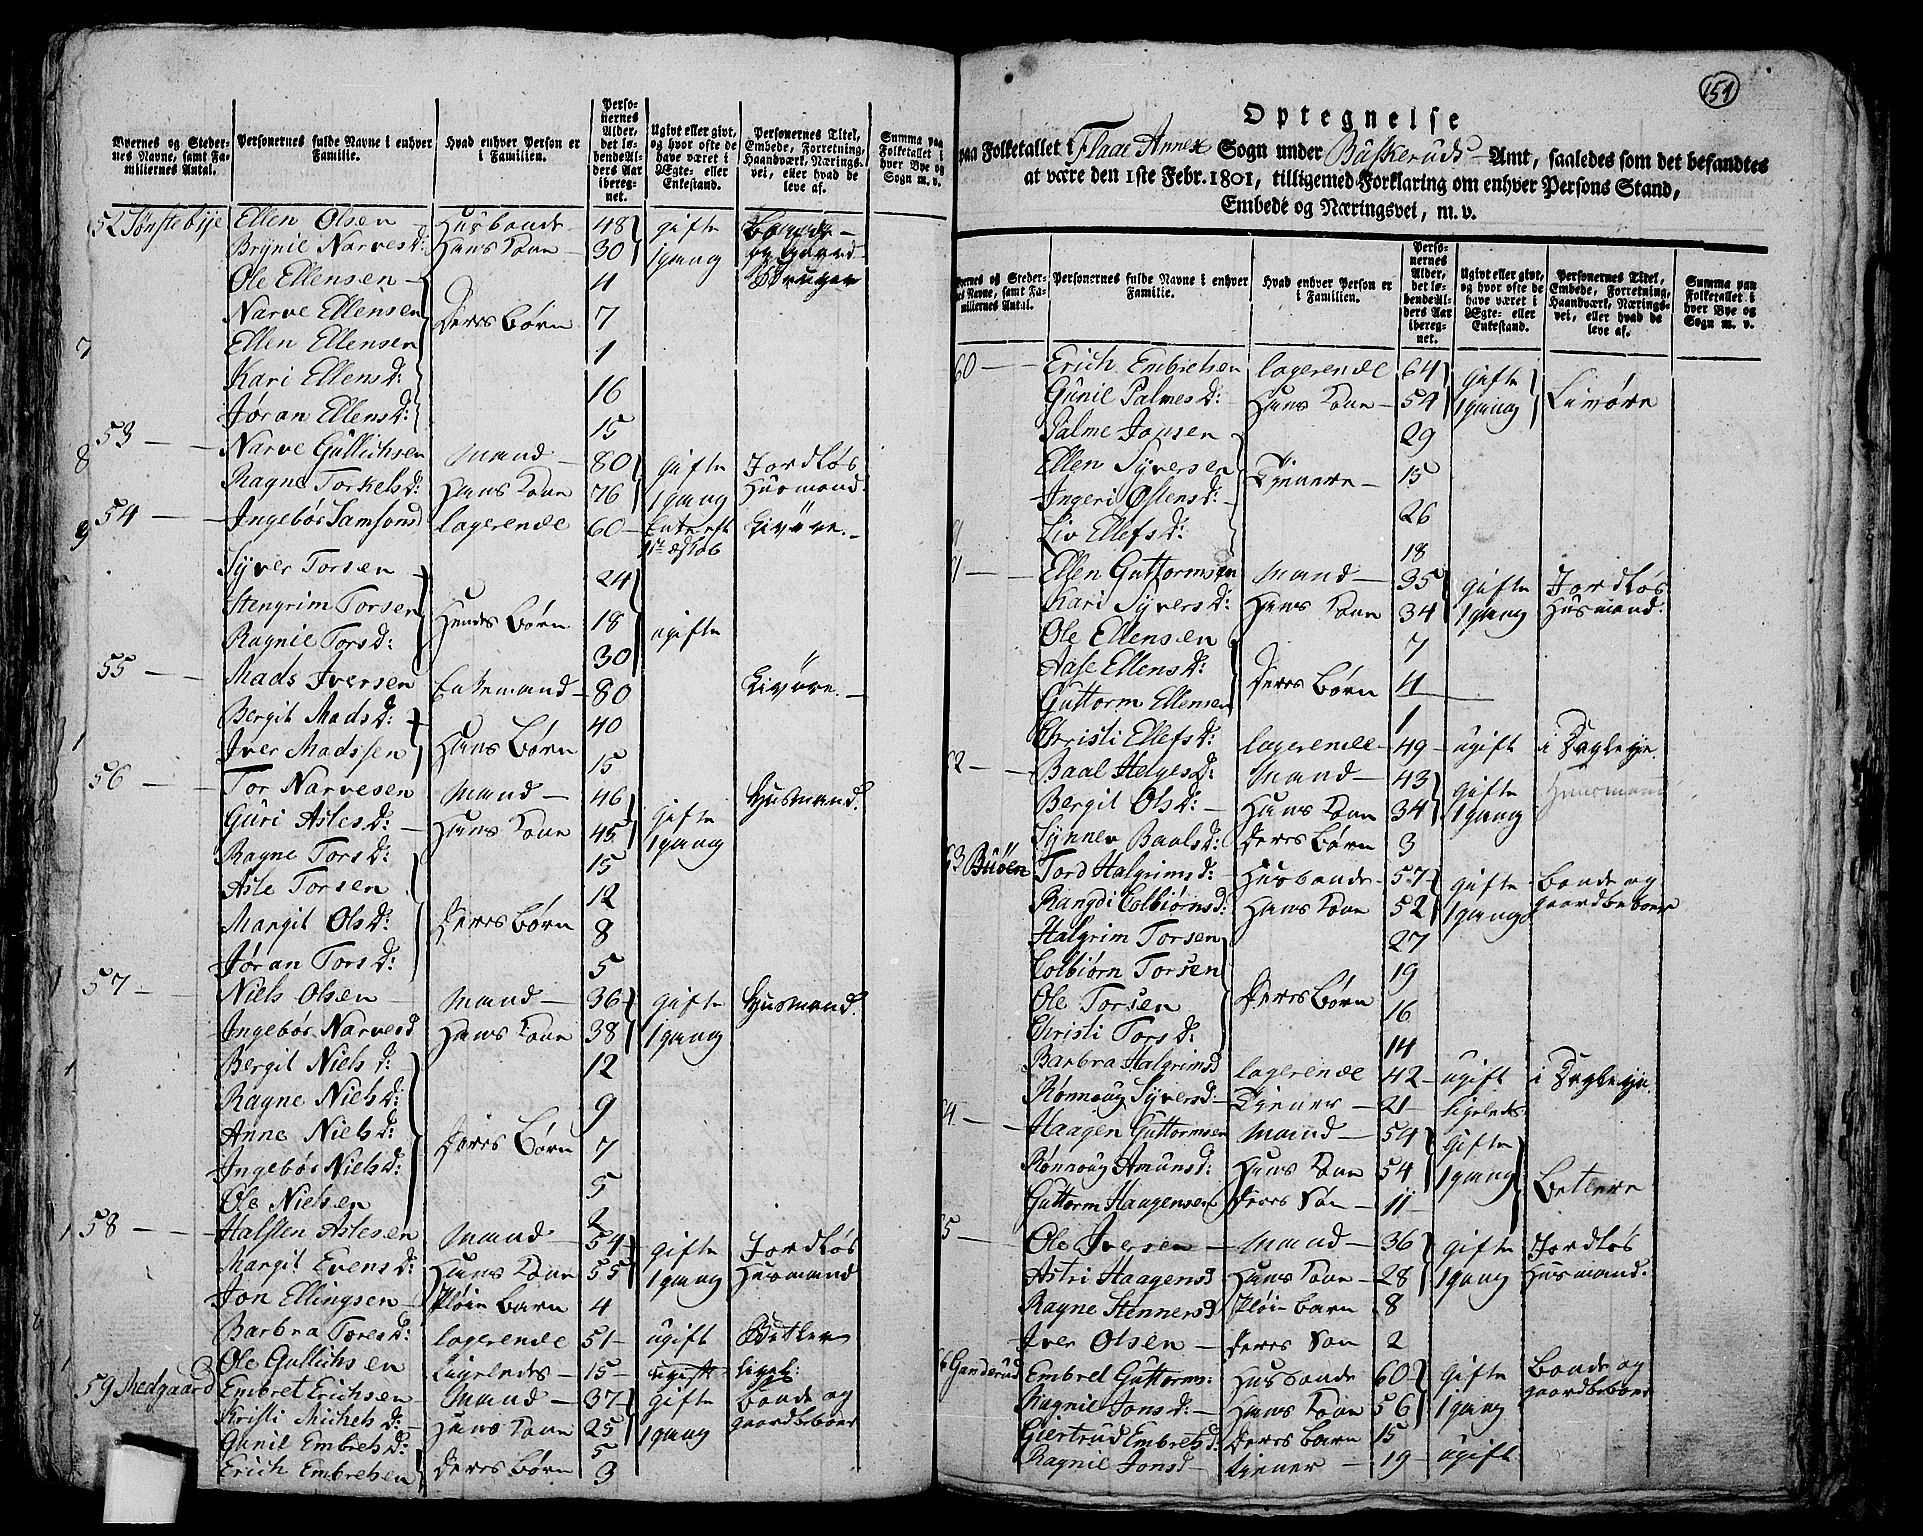 Byernes og Stedernes Navne, samt Familiernes Antal. | Personernes fulde Navne i enhver Familie. | Hvad enhver Person er i Familien. | Personernes Alder, det løbende Alders Aar iberegnet. | Ugivt eller givt, og hvor ofte de have været i Ægte- eller Enkestand. | Personernes Titel, Embede, Forretning, Haandværk, Næringsvei, eller hvad de leve af. | Summa paa Folketallet i hver Bye og Sogn m. v.
52 Tønstebÿe Ellen Olsen Husbonde 48 gifte Bonde
Brÿnil Narvesd: Hans Kone 30 1 gang og gaard
Ole Ellensen 4 Bruger
Narve Ellensen Deres Børn 7
7 Ellen Ellensen 1
Kari Ellensd: 16
Jøran Ellensd: 15
53 Narve Gullichsen Mand 80 gifte Jordløs
8 Ragne Torkelsd: Hans Kone 76 1 gang Husmand
54 Ingebør Samsonsd logerende 60 Enke eft Livøre
9 1te
Syver Torsen 24
Stengrim Torsen Hendes Børn 18 ugifte
Ragnil Torsd: 30
55 Mads Iversen Enkemand 80 Livøre
Bergit Madsd: Hans Børn 40
Iver Madssen 15
56 Tor Narvesen Mand 46 gifte Husmand
Guri Aslesd: Hans Kone 45 1 gang
Ragne Torsd: 15
Asle Torsen 12
Margit Olsd: Deres Børn 8
Jøran Torsd: 5
57 Niels Olsen Mand 36 gifte Husmand
Ingebør Narvesd Hans Kone 38 1 gang
Bergit Nielsd: 12
Ragne Nielsd: 9
Anne Nielsd: Deres Børn 7
Ingebør Nielsd: 5
Ole Nielsen 2
58 Halsten Aslesen Mand 54 gifte Jordløs
Margit Evensd: Hans Kone 55 1 gang Husmand
Jon Ellingsen Pleie barn 4
Barbra Toresd: logerende 51 ugift Betler
Ole Gullichsen Ligeledes 15 ugift ligel:
59 Medgaard Embret Erichsen Mand 37 gifte Bonde og
Kristi Michelsd: Hans Kone 25 1 gang gaardbeboer
Gunil Embretsd: 5
Erich Embretsen Deres Børn 3
151
Optegnelse
paa Folketallet i Flaae Annex Sogn under Buskeruds Amt, saaledes som det befandtes
at være den 1ste Febr. 1801, tilligemed Forklaring om enhver Persons Stand,
Embede og Næringsvei, m. v.
Byernes og Stedernes Navne, samt Familiernes Antal. | Personernes fulde Navne i enhver Familie. | Hvad enhver Person er i Familien. | Personernes Alder, det løbende Alders Aar iberegnet. | Ugivt eller givt, og hvor ofte de have været i Ægte- eller Enkestand. | Personernes Titel, Embede, Forretning, Haandværk, Næringsvei, eller hvad de leve af. | Summa paa Folketallet i hver Bye og Sogn m. v.
60 Erich Embretsen logerende 64 gifte Livøre
Gunil Palmesd: Hans Kone 54 1 gang
Palme Jonsen 29
Ellen Syversen Tjenere 15
Ingeri Østensd: 26
Liv Ellefsd: 18
Ellen Guttormsen Mand 35 gifte Jordløs
Kari Syversd: Hans Kone 34 1 gang Husmand
Ole Ellensen 7
Aase Ellensd: Deres Børn 4
Guttorm Ellensen 1
Christi Ellefsd: logerende 49 ugift i Dagleye
62 Baal Helgesd: Mand 43 gifte Huusmand
Bergit Olsd: Hans Kone 34 1 gang
Synnev Baalsd: Deres Børn 3
63 Buøen Tord Halgrimsd: Husbonde 57 gifte Bonde og
Rangdi Colbiørnsd: Hans Kone 52 1 gang gaardbeboer
Halgrim Torsen 27
Colbiørn Torsen 19
Ole Torsen Deres Børn 16
Christi Torsd: 14
Barbra Halgrimsd logerende 42 ugift i Dagleye
Rønnoug Syversd: Tjener 21 ligeleds
4 Haagen Guttormsen Mand 54 gifte
Rønnoug Amunsd: Hans Kone 54 1 gang Betlere
Guttorm Haagensen Deres Søn 11
5 Ole Iversen Mand 36 gifte Jordløs
Astri Haagensd Hans Kone 28 1 gang Husmand
Ragne Stennersd Pleie barn 8
Iver Olsen Deres Søn 2
6 Ganderud Embret Guttorms: Husbonde 60 gifte Bonde og
Ragnil Jonsd: Hans Kone 56 1 gang gaardbeboer
Giertrud Embretsd: Deres barn 15
Ragnil Jonsd Tjener 19 ugift